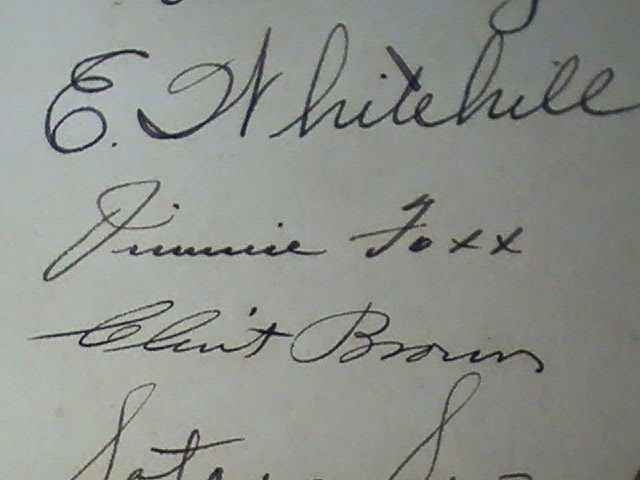 E. Whitehill
Jimmie Foxx
Clint Brown